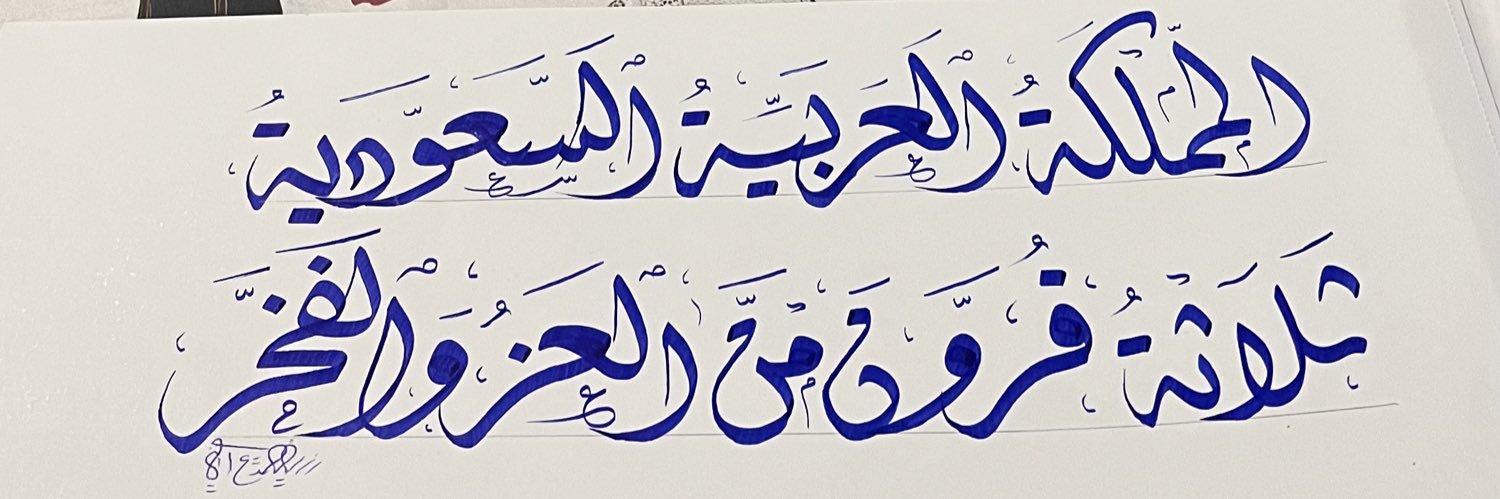 المملكة العربية السعودية
ثلاثة قرون من العز والفخر